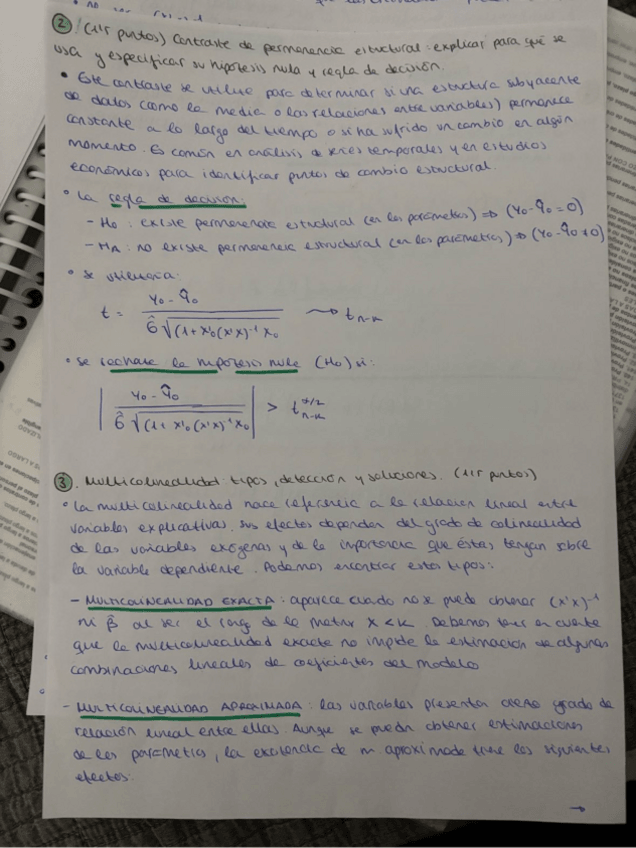 ② (1'5 puntos) Contraste de permanencia estructural: explicar para qué se
usa y especificar su hipótesis nula y regla de decisión.
• Este contraste se utiliza para determinar si una estructura subyacente
de datos (como la media o las relaciones entre variables) permanece
constante a lo largo del tiempo o si ha sufrido un cambio en algún
momento. Es común en análisis de series temporales y en estudios
económicos para identificar puntos de cambio estructural.
• La regla de decisión:
- H₀: existe permanencia estructural (en los parámetros) => (y₀ - ŷ₀ = 0)
- HA: no existe permanencia estructural (en los parámetros) => (y₀ - ŷ₀ ≠ 0)
• se utilizaría:
t = (y₀ - ŷ₀) / (σ̂ √(1 + x'₀(x'x)⁻¹x₀) ⇝ t n-k
• se rechaza la hipótesis nula (H₀) si:
| (y₀ - ŷ₀) / (σ̂ √(1 + x'₀(x'x)⁻¹x₀) | > t n-k ^α/2
③. Multicolinealidad: tipos, detección y soluciones. (1'5 puntos)
• La multicolinealidad hace referencia a la relación lineal entre
variables explicativas. Sus efectos dependen del grado de colinealidad
de las variables exógenas y de la importancia que éstas tengan sobre
la variable dependiente. Podemos encontrar estos tipos:
- MULTICOLINEALIDAD EXACTA: aparece cuando no se puede obtener (x'x)⁻¹
ni β̂ al ser el rango de la matriz X < K. Debemos tener en cuenta
que la multicolinealidad exacta no impide la estimación de algunas
combinaciones lineales de coeficientes del modelo
- MULTICOLINEALIDAD APROXIMADA: las variables presentan cierto grado de
relación lineal entre ellas. Aunque se puedan obtener estimaciones
de los parámetros, la existencia de m aproximada tiene los siguientes
efectos:
→